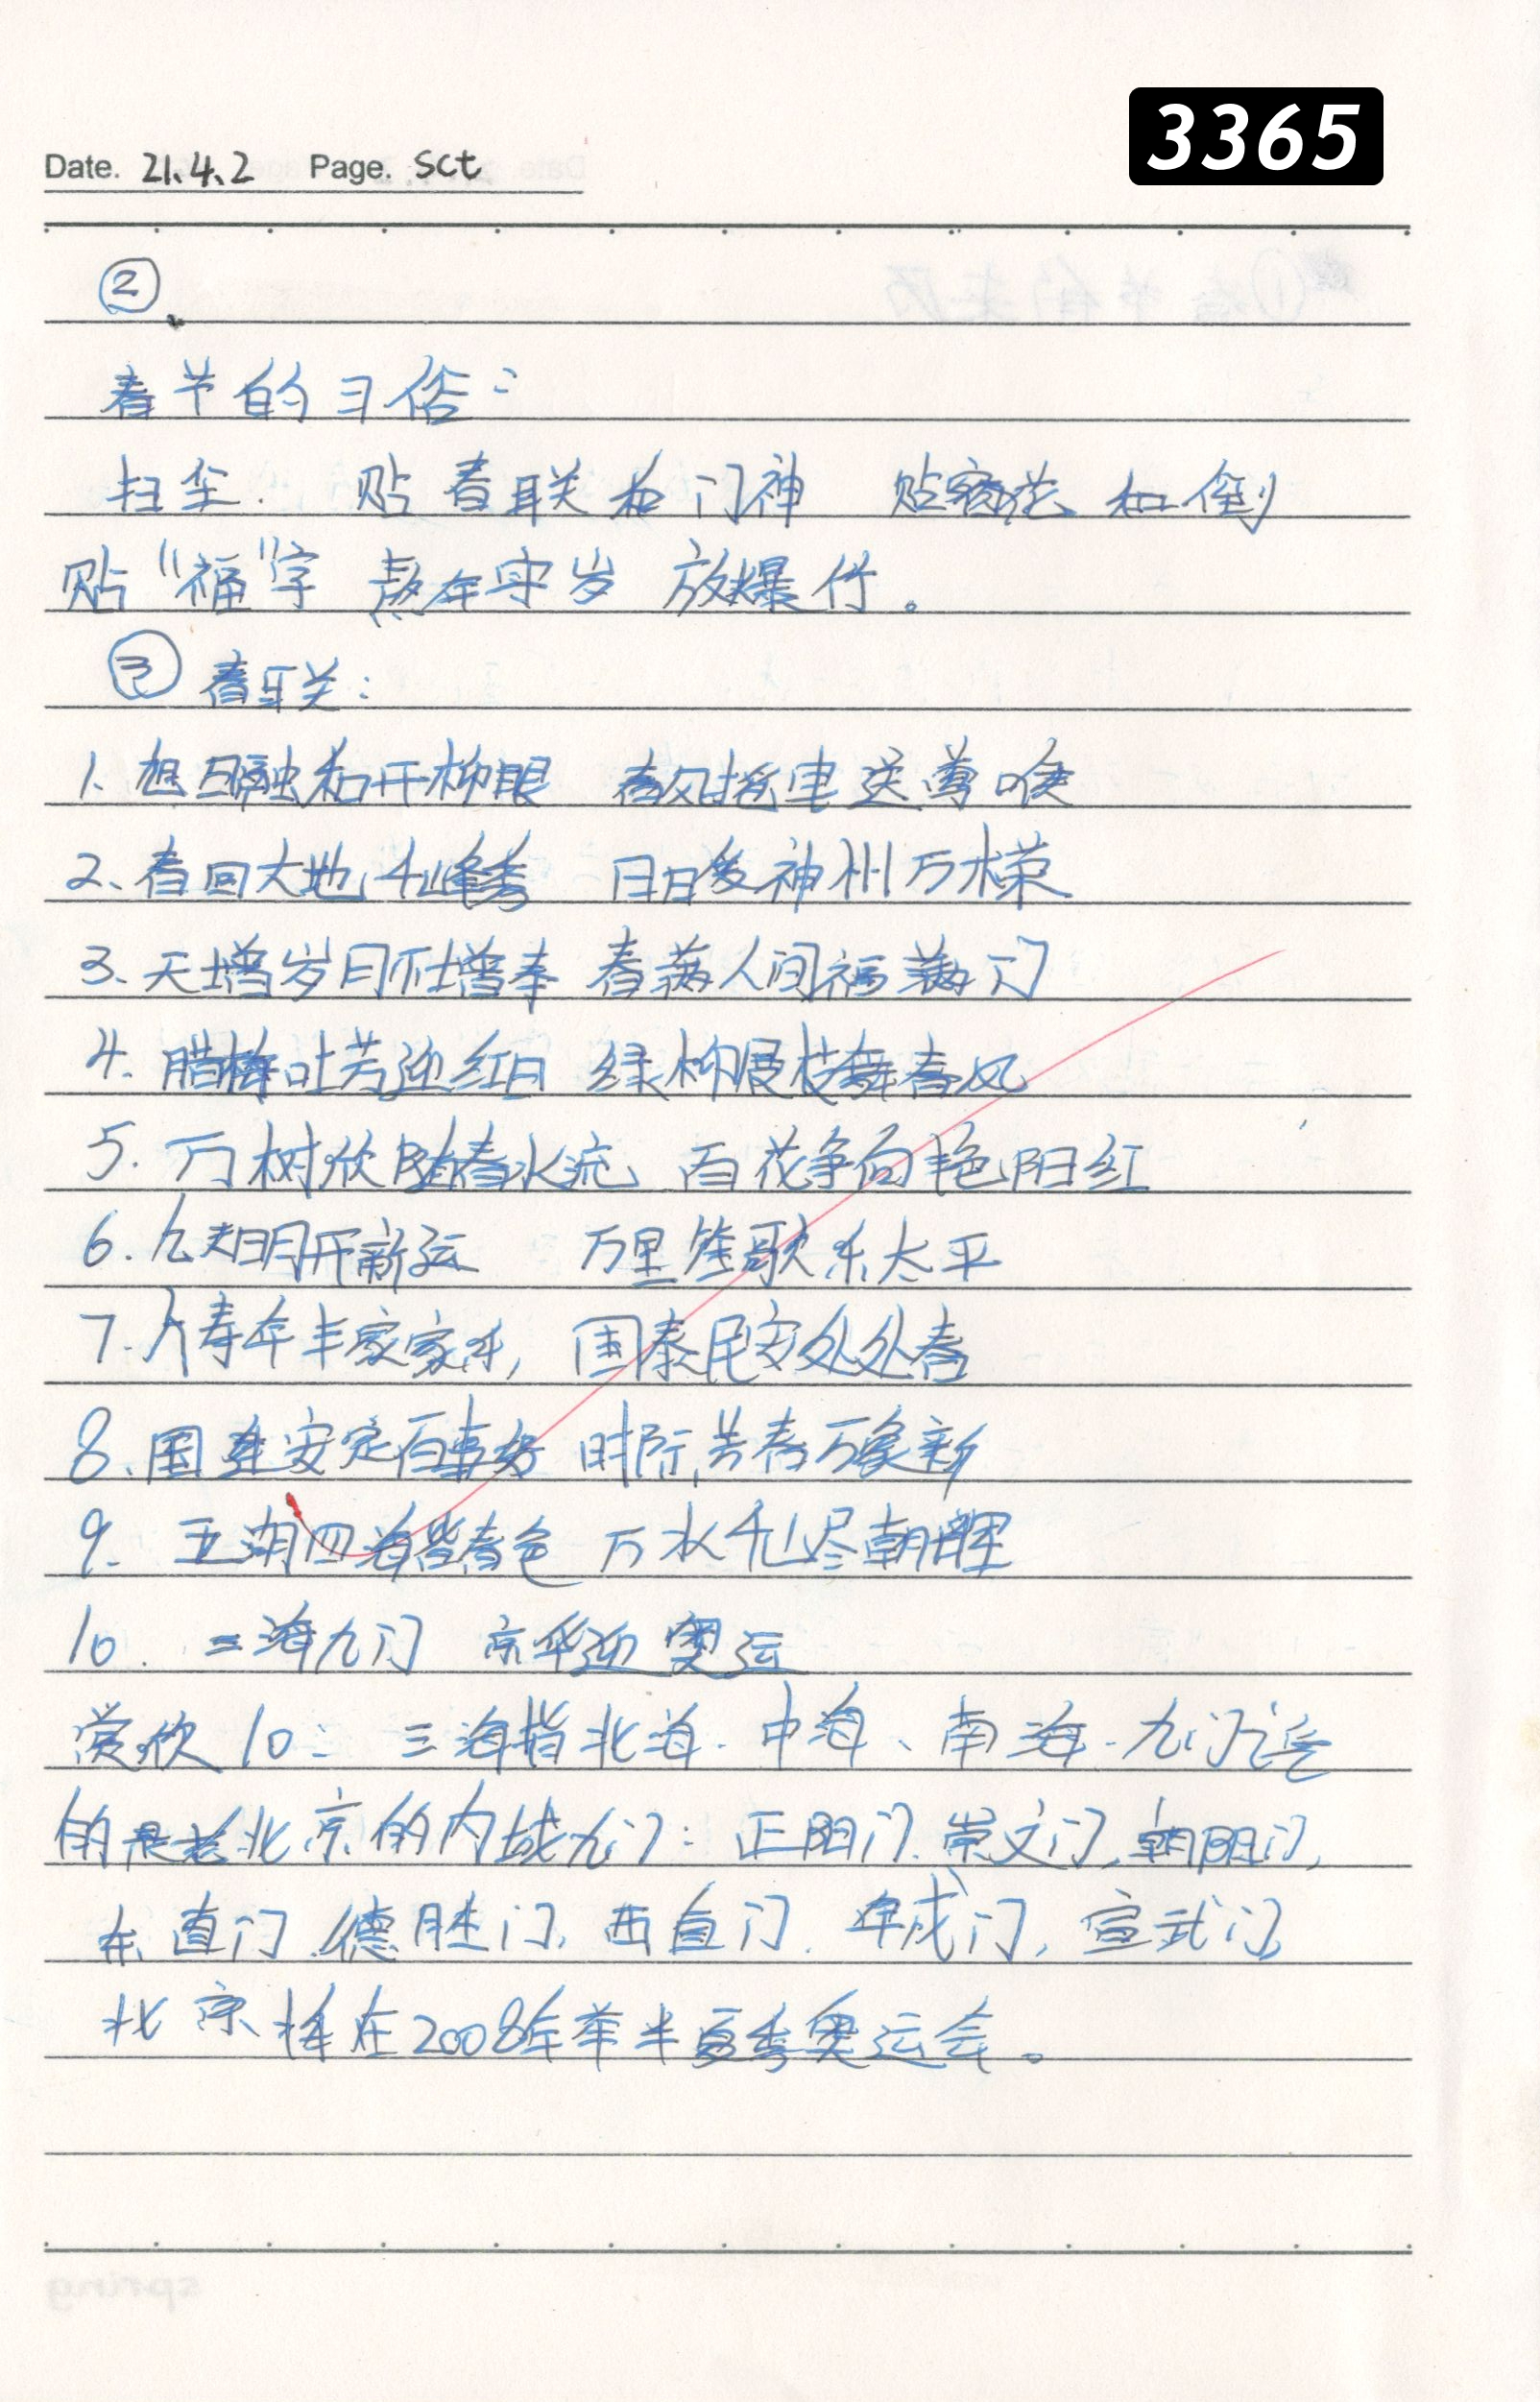 3365
Date. 21.4.2 Page. Sct
②
春节的习俗：
扫尘. 贴春联和门神 贴窗花和倒
贴“福”字 熬年守岁 放爆竹。
③ 春联：
1. 旭日融和开柳眼 春风 送莺喉
2、春回大地千峰秀 日 神州万木荣
3、天增岁月 增 春满人间福满门
4. 腊梅吐芳迎红日 绿柳展枝舞春风
5. 万树欣随春水流 百花争向艳阳红
6. 九 开新运 万里笙歌乐太平
7. 人寿年丰家家乐, 国泰民安处处春
8、国 安定百事好 时 春万象新
9. 五湖四海皆春色 万水千山尽朝晖
10. 三海九门 京华迎奥运
赏欣10: 三海指北海. 中海、南海. 九门
的是老北京的内城九门: 正阳门. 崇文门, 朝阳门,
东直门. 德胜门, 西直门. 阜成门, 宣武门,
北京将在2008年举半夏季奥运会。
spring